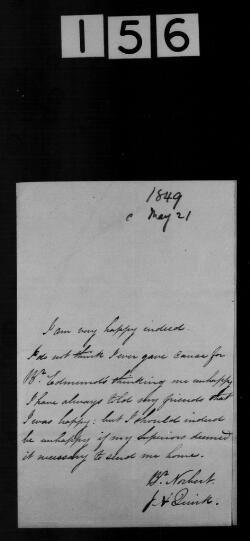 156
1849
c May 21
I am very happy indeed.
I do not think I ever gave cause for
Br. Edmund's thinking me unhappy
I have always told my friends that
I was happy: but I should indeed
be unhappy if my superiors deemed
it necessary to send me home.
Br. Norbert.
J. A Quirk.